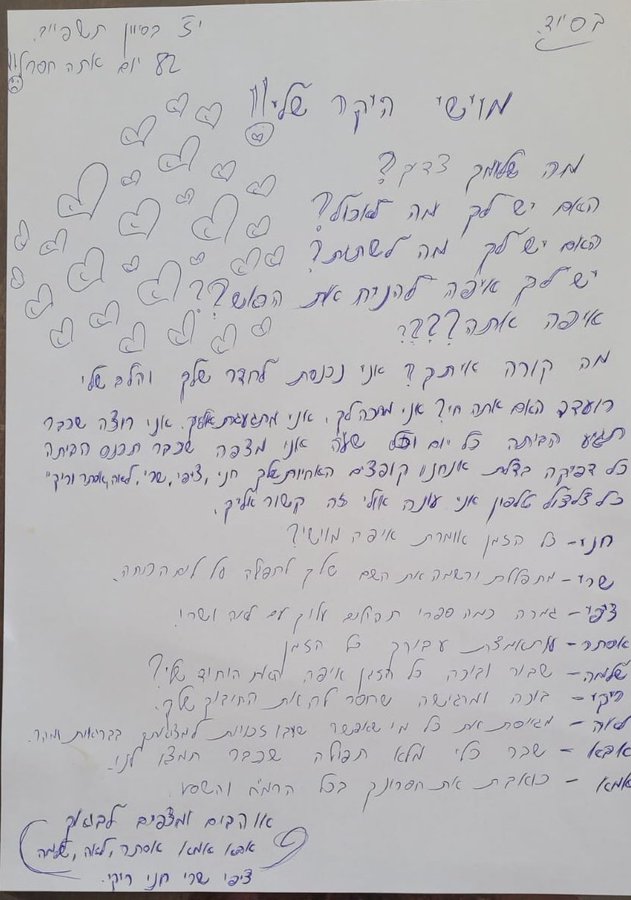 בסיוד
יצ בסיוון תשפ"ב.
84 יום אתה חסר לי!!
מוישי היקר שלי!!
מה שלומך צדיק?
האם יש לך מה לאכול?
האם יש לך מה לשתות?
יש לך איפה להניח את הראש??
איפה אתה????
מה קורה איתך? אני נכנסת לחדר שלך והלב שלי
רועד? האם אתה חי? אני מחכה לך, אני מתגעגעת אליך. אני רוצה שכבר
תגיע הביתה כל יום וכל שעה אני מצפה שכבר תכנס הביתה
כל דפיקה בדלת אנחנו קופצים האחיות שלך חני, ציפי, שרי, לאה, אסתר וריקי
כל צלצול טלפון אני עונה אולי זה קשור אליך.
חני – כל הזמן אומרת איפה מוישי?
שרי – מתפללת ורשמה את השם שלך לתפילה על
ציפי – גמרה כמה ספרי תהילים עליך עם לאה ושרי.
אסתר – מתאמצת עבורך כל הזמן
שלמה – שבור ובוכה כל הזמן איפה האח היחיד שלי?
ריקי – בוכה ומרגישה שחסר לה את החיבוק שלך.
לאה – מגייסת את כל מי שאפשר שיעשו זכויות למצוא אותך בבריאות ומהר.
אבא – שבר כלי מלא תפילה שכבר תמצא לנו.
אמא – כואבת את חסרונך בכל הרמ"ח והשס"ע.
אוהבים ומצפים לבואך
אבא אמא אסתר, לאה, שלמה
ציפי שרי חני ריקי.